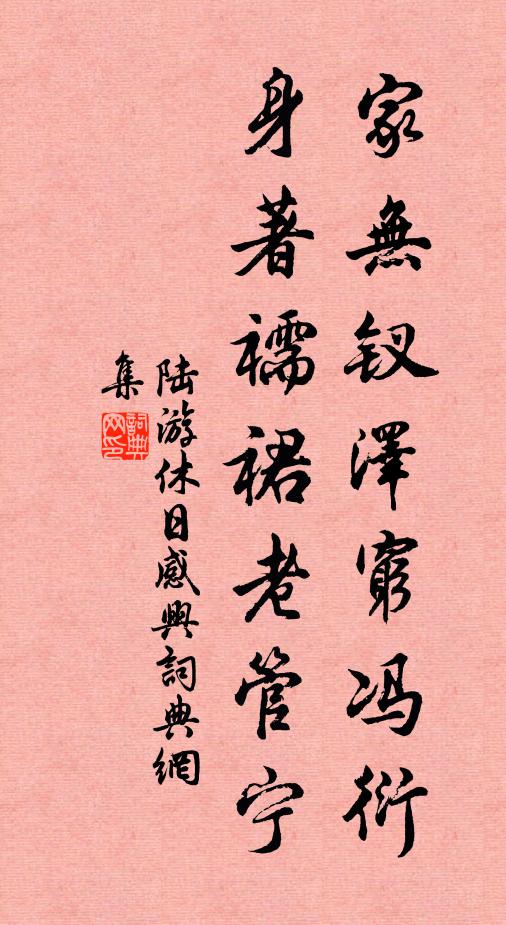 家無钗澤窮冯衍
身著襦裙老管宁
陆游休日感興詞典網
集
詞典網印